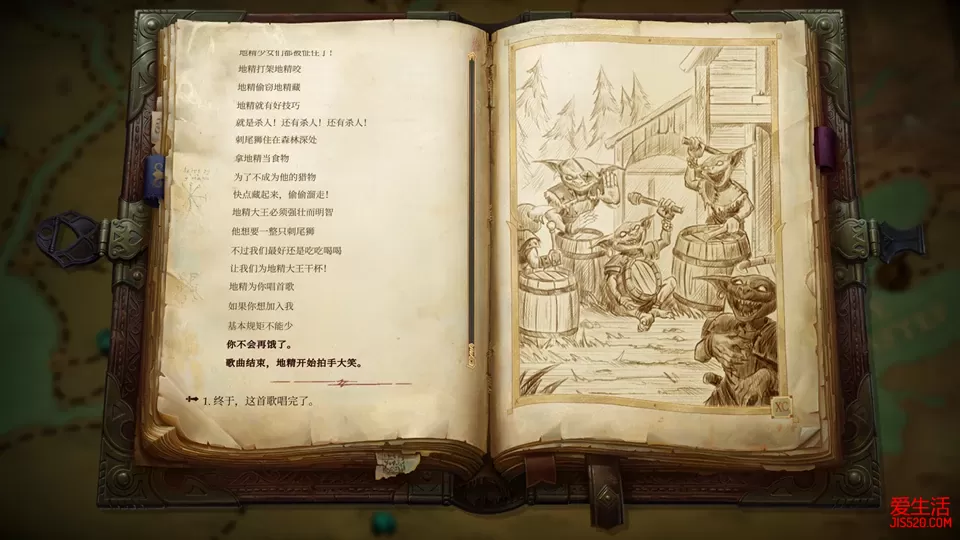 地精少女们都被怔住了！
地精打架地精咬
地精偷窃地精藏
地精就有好技巧
就是杀人！还有杀人！还有杀人！
刺尾狮住在森林深处
拿地精当食物
为了不成为他的猎物
快点藏起来，偷偷溜走！
地精大王必须强壮而明智
他想要一整只刺尾狮
不过我们最好还是吃吃喝喝
让我们为地精大王干杯！
地精为你唱首歌
如果你想加入我
基本规矩不能少
你不会再饿了。
歌曲结束，地精开始拍手大笑。
1. 终于，这首歌唱完了。
爱生活
JIS520.COM